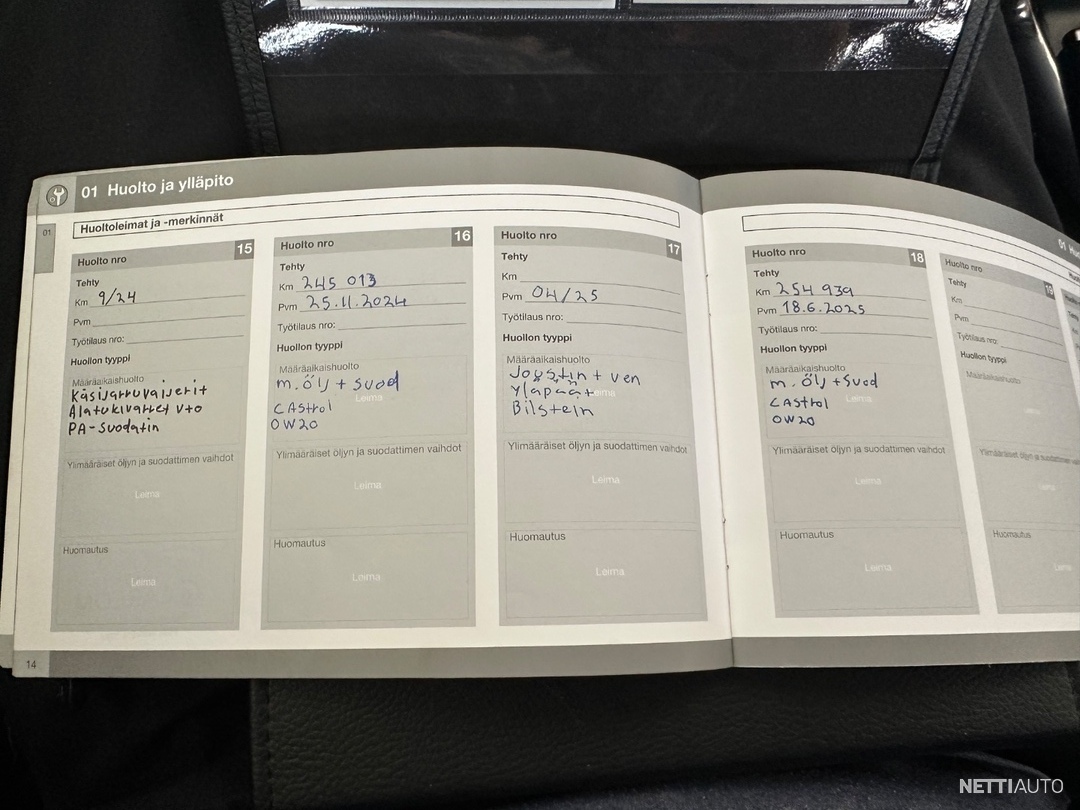 01 Huolto ja ylläpito
01
Huoltoleimat ja -merkinnät
Huolto nro 15
Tehty
Km 9/24
Pvm
Työtilaus nro:
Huollon tyyppi
Määräaikaishuolto
Käsijarruvaijerit
Alatukivarret v+o
PA-suodatin
Ylimääräiset öljyn ja suodattimen vaihdot
Leima
Huomautus
Leima
14
Huolto nro 16
Tehty
Km 245 013
Pvm 25.11.2024
Työtilaus nro:
Huollon tyyppi
Määräaikaishuolto
m.ölj + suod
Leima
CAstrol
0W20
Ylimääräiset öljyn ja suodattimen vaihdot
Leima
Huomautus
Leima
Huolto nro 17
Tehty
Km
Pvm 04/25
Työtilaus nro:
Huollon tyyppi
Määräaikaishuolto
Joustin + ven
Yläpäät
Leima
Bilstein
Ylimääräiset öljyn ja suodattimen vaihdot
Leima
Huomautus
Leima
Huolto nro 18
Tehty
Km 254 939
Pvm 18.6.2025
Työtilaus nro:
Huollon tyyppi
Määräaikaishuolto
m.ölj + suod
Leima
CAstrol
0W20
Ylimääräiset öljyn ja suodattimen vaihdot
Leima
Huomautus
Leima
01
Huolto nro 19
Tehty
Km
Pvm
Työtilaus nro:
Huollon tyyppi
Määräaikaishuolto
Ylimääräiset öljyn ja suodattimen
Huomautus
NETTIAUTO